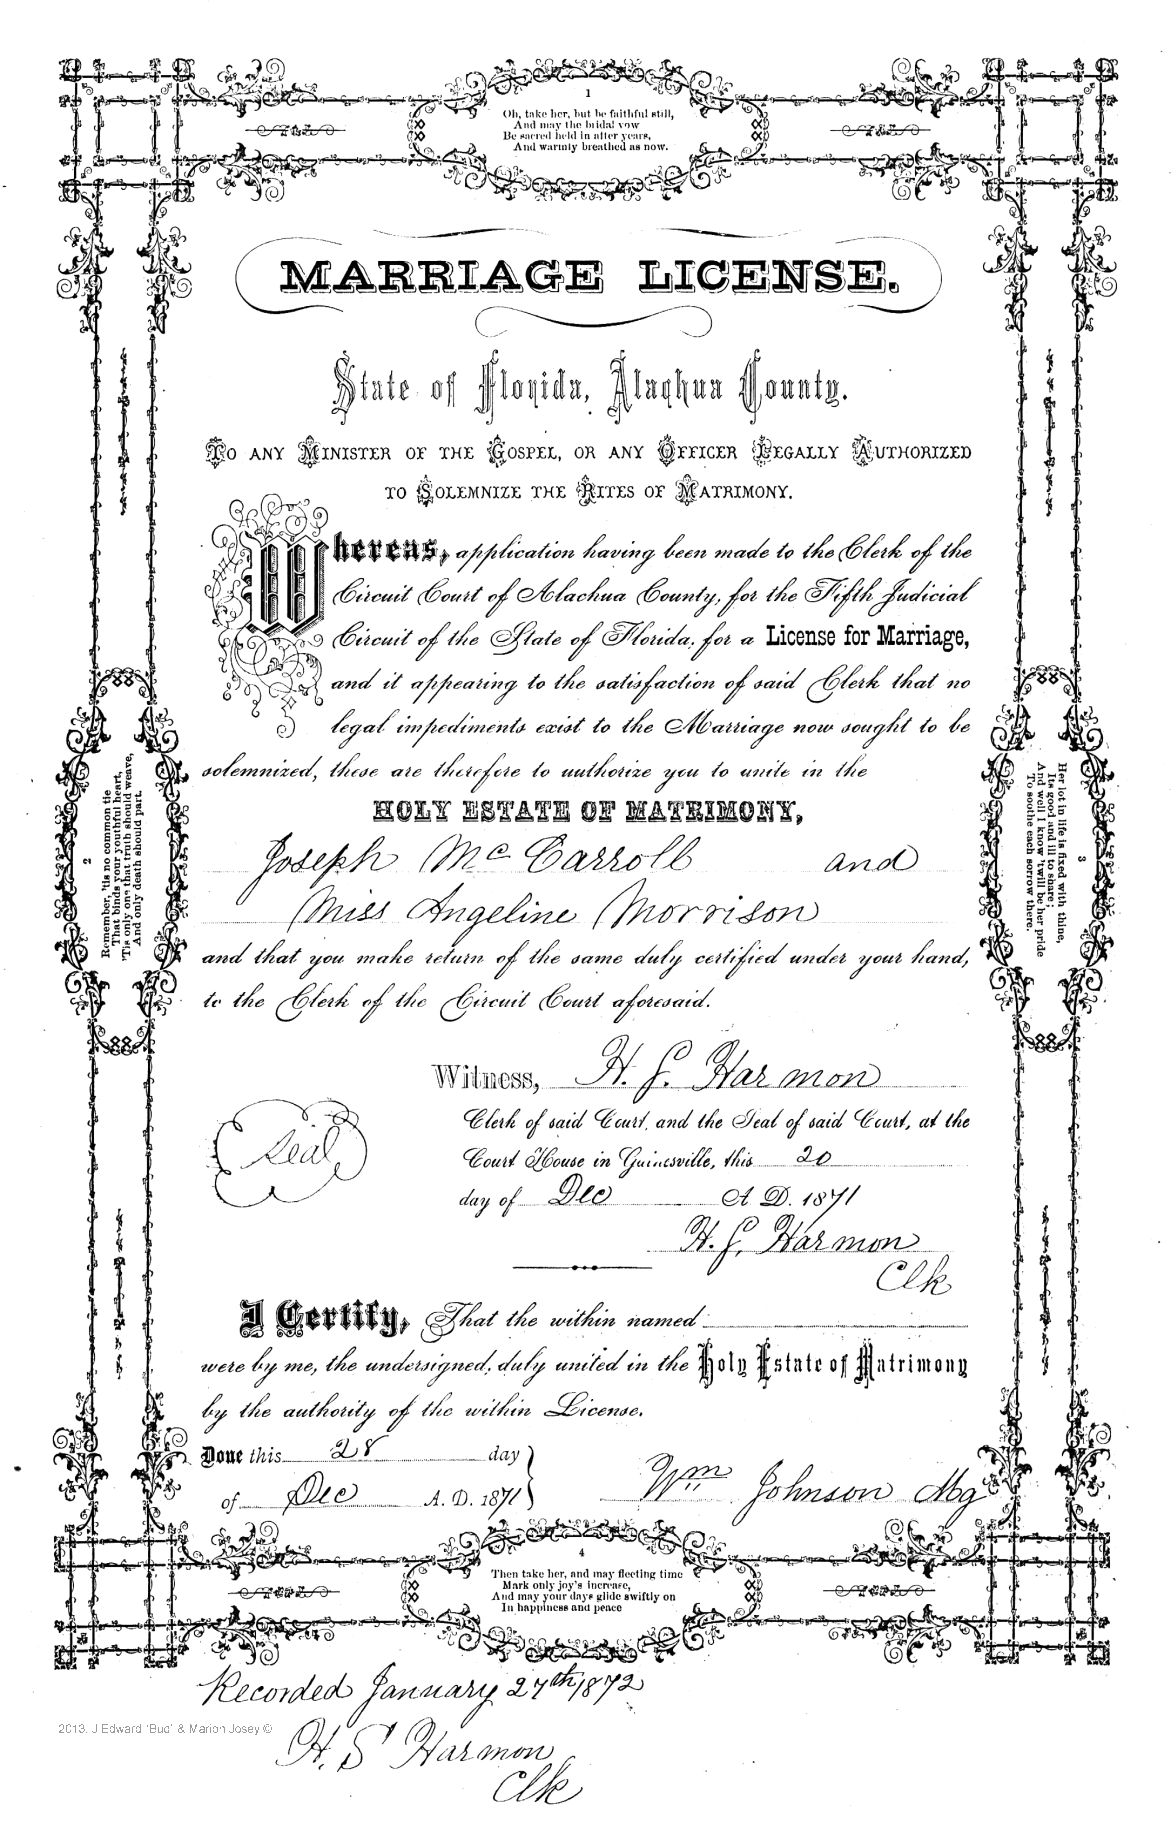 1
Oh, take her, but be faithful still,
And may the bridal vow
Be sacred held in after years,
And warmly breathed as now.
MARRIAGE LICENSE.
State of Florida, Alachua County.
TO ANY MINISTER OF THE GOSPEL, OR ANY OFFICER LEGALLY AUTHORIZED
TO SOLEMNIZE THE RITES OF MATRIMONY.
Whereas, application having been made to the Clerk of the
Circuit Court of Alachua County, for the Fifth Judicial
Circuit of the State of Florida, for a License for Marriage,
and it appearing to the satisfaction of said Clerk that no
legal impediments exist to the Marriage now sought to be
solemnized, these are therefore to authorize you to unite in the
HOLY ESTATE OF MATRIMONY,
Joseph McCarroll and
Miss Angeline Morrison
and that you make return of the same duly certified under your hand,
to the Clerk of the Circuit Court aforesaid.
2
Remember, 'tis no common tie
That binds your youthful heart,
'Tis only one that truth should weave,
And only death should part.
3
Her lot in life is fixed with thine,
Its good and ill to share;
And well I know 'twill be her pride
To soothe each sorrow there.
Witness, H. S. Harmon
Clerk of said Court, and the Seal of said Court, at the
Court House in Gainesville, this 20
day of Dec A. D. 1871
Seal
H. S. Harmon
Clk
I Certify, That the within named
were by me, the undersigned, duly united in the Holy Estate of Matrimony
by the authority of the within License.
Done this 28 day
of Dec A. D. 1871
Wm Johnson Mg
4
Then take her, and may fleeting time
Mark only joy's increase,
And may your days glide swiftly on
In happiness and peace
Recorded January 27th 1872
2013. J Edward 'Bud' & Marion Josey ©
H. S Harmon
Clk